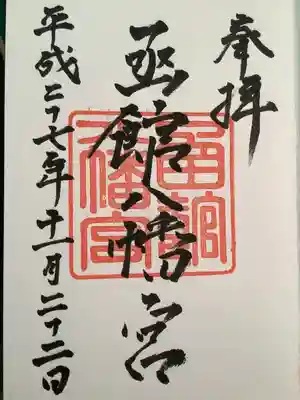 奉拝
凾館八幡宮
平成二十七年十一月二十二日
函館
八幡宮